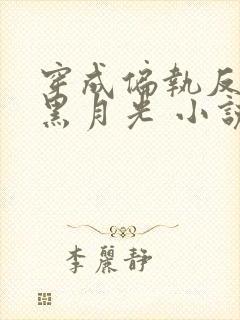 穿成偏執反
黑月光 小說
李麗靜